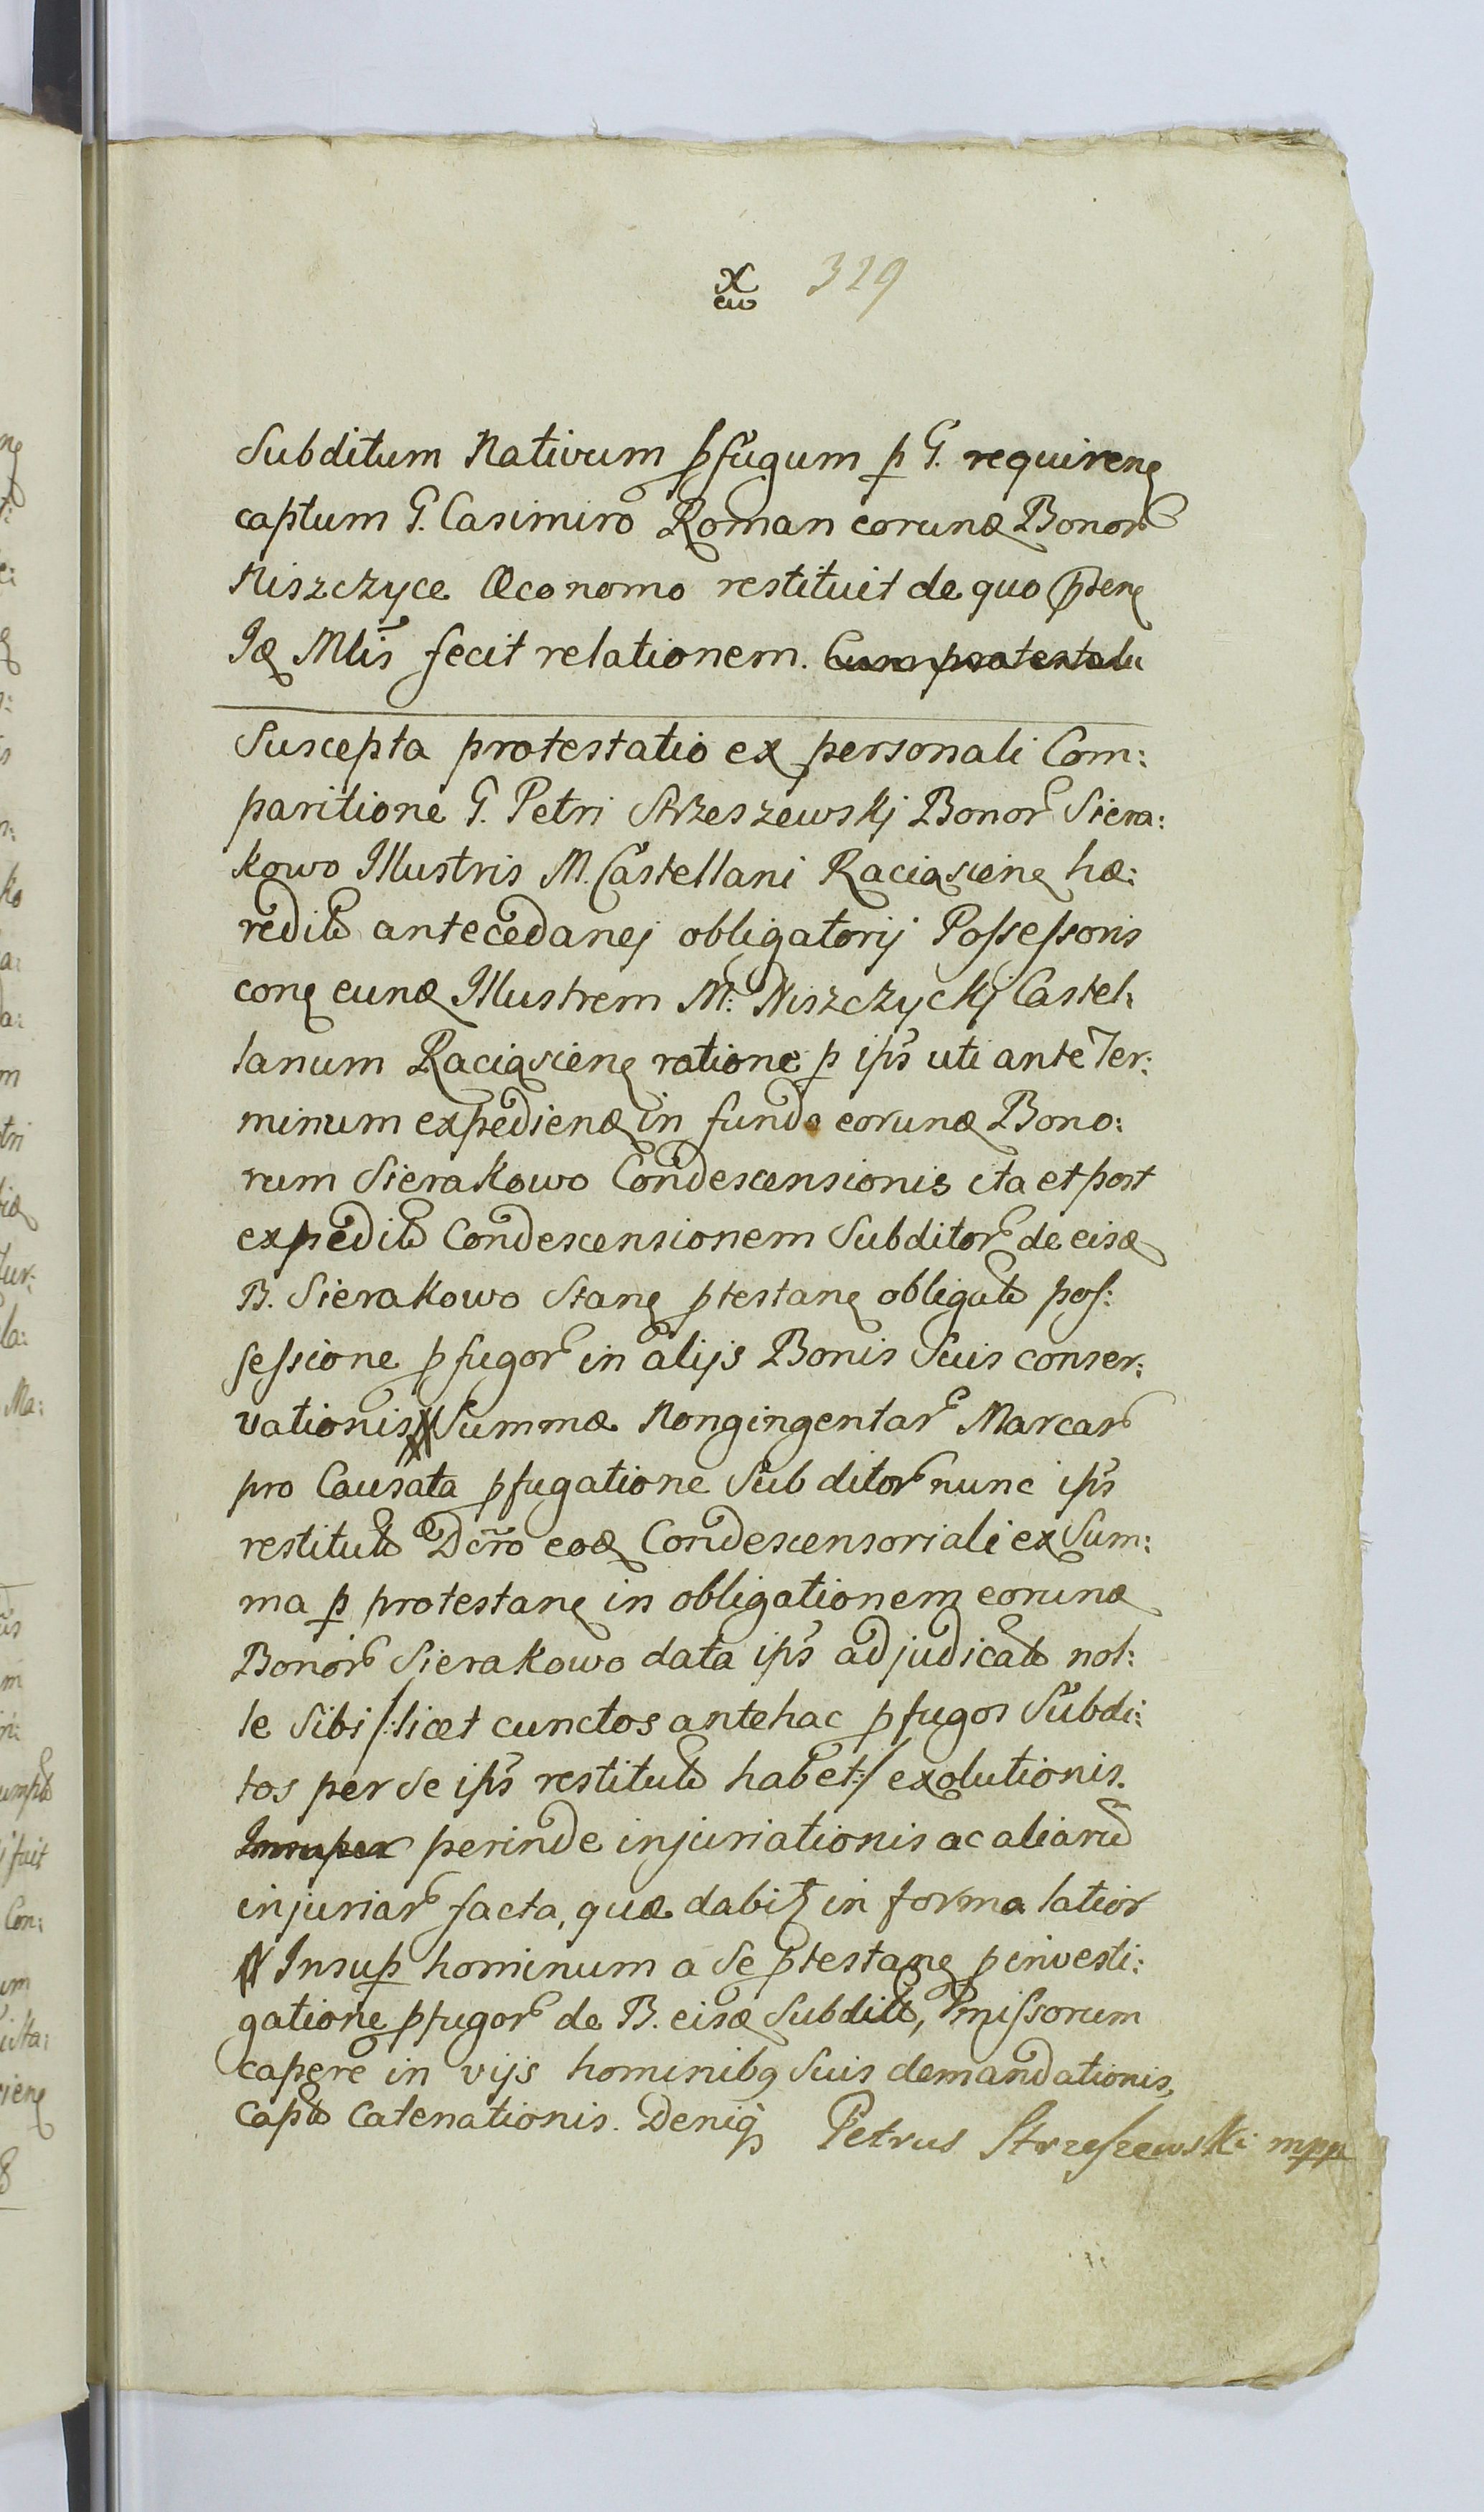 329
Subditum Nativum pfugum p G. requireng
captum G. Casimiro Roman eorund Bonor
Niszczyce Œconomo restituit de quo pseng
Id Mlis fecit relationem. Cum protestatu
Suscepta protestatio ex personali Com:
paritione G. Petri Strzeszewskj Bonor Siera:
kowo Illustris M. Castellani Raciąscieng hæ:
redit antecedanej obligatorij Possessoris
cong eund Illustrem M: Niszczyckj Castel:
lanum Raciąscieng ratione p ips uti ante Ter:
minum expediend in fundo eorund Bono:
rum Sierakowo Condescensionis ita et post
expedit Condescensionem Subditor de eisd
B. Sierakowo Stang ptestang obligat pos:
sessione pfugor in alijs Bonis Suis conser:
vationis Summæ Nongingentar Marcar
pro Causata pfugatione Subditor nunc ips
restitut Dcro eod Condescensoriali ex Sum:
ma p protestang in obligationem eorund
Bonor Sierakowo data ips adjudicat nol:
le Sibi /:licet cunctos antehac pfugos Subdi:
tos per se ips restitut habet:/ exolutionis.
Insuper perinde injuriationis ac aliarū
injuriar facta, quæ dabit in forma latior
Insup hominum a Se ptestang p investi:
gatione pfugor de B. eisd Subdit, Pmissorum
capere in vijs hominibq Suis demandationis,
capt Catenationis. Deniq Petrus Strzeszewski mpp